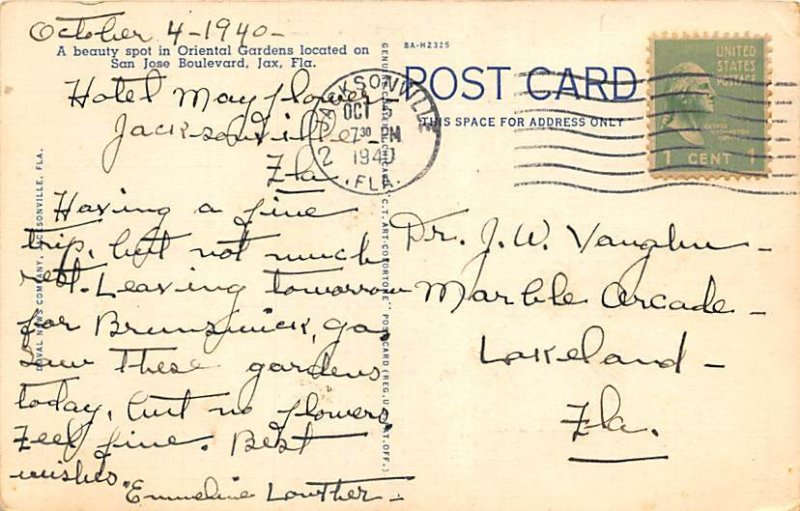 October 4-1940-
A beauty spot in Oriental Gardens located on
San Jose Boulevard, Jax, Fla.
Hotel Mayflower-
Jacksonville
Fla.
Having a fine
trip, but not much
rest. Leaving tomorrow
for Brunswick, Ga.
Saw these gardens
today, but no flowers.
Feel fine. Best
wishes.
Emmeline Lowther-
DUVAL NEWS COMPANY, JACKSONVILLE, FLA.
8A-H2325
GENUINE CURTEICH-CHICAGO "C.T. ART-COLORTONE" POST CARD (REG. U.S. PAT. OFF.)
POST CARD
THIS SPACE FOR ADDRESS ONLY
JACKSONVILLE
OCT
7 30 PM
1940
2
FLA.
UNITED
STATES
POSTAGE
1 CENT 1
Dr. J. W. Vaughn-
Marble Arcade-
Lakeland-
Fla.